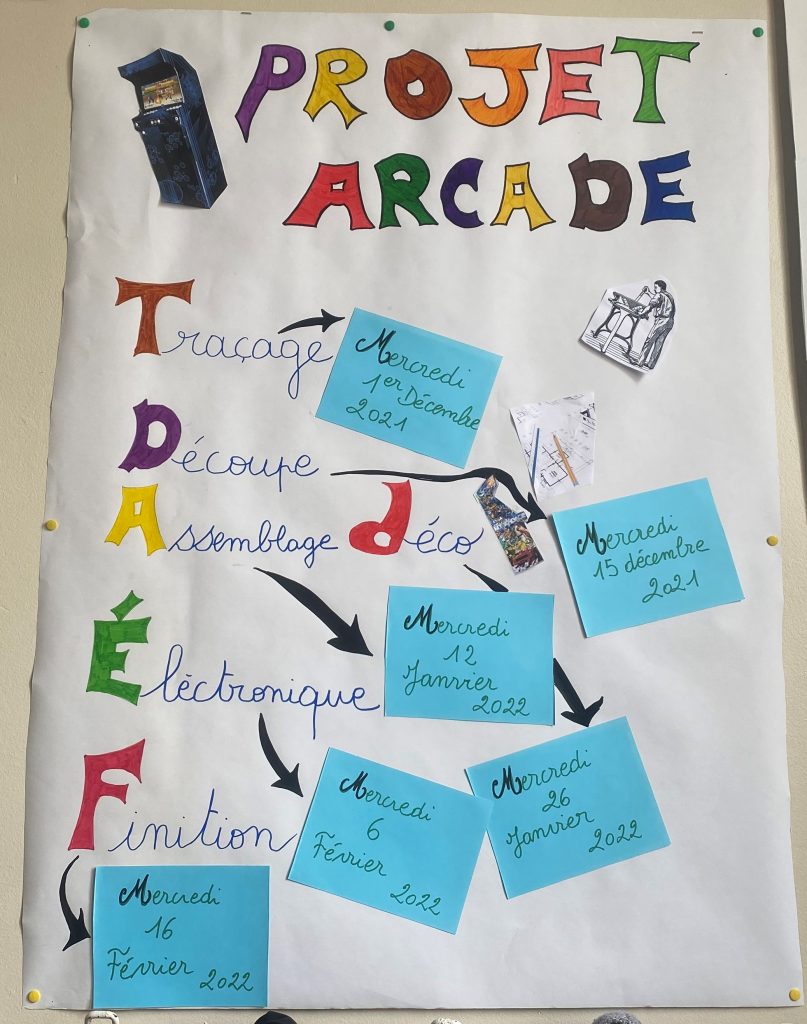 PROJET
ARCADE
Traçage
Mercredi
1er Décembre
2021
Découpe
Mercredi
15 décembre
2021
Assemblage déco
Mercredi
12
Janvier
2022
Mercredi
26
Janvier
2022
Éléctronique
Mercredi
6
Février
2022
Finition
Mercredi
16
Février
2022